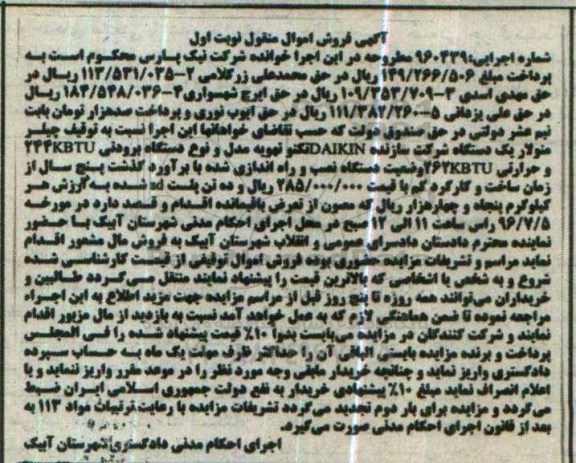 آگهی فروش اموال منقول نوبت اول
شماره اجرایی:۹۶۰۴۳۹ مطروحه در این اجرا خوانده شرکت نیک پارس محکوم است به
پرداخت مبلغ ۱۴۹/۲۶۶/۵۰۶ ریال در حق محمدعلی زرگلامی ۲-۱۱۳/۵۳۱/۰۳۵ ریال در
حق مهدی اسدی ۳-۱۰۹/۳۵۳/۷۰۹ ریال در حق ایرج شهسواری ۴-۱۸۴/۵۴۸/۰۳۶ ریال
در حق علی یزدانی ۵-۱۱۱/۳۸۲/۲۶۰ ریال در حق ایوب نوری و پرداخت صدهزار تومان بابت
نیم عشر دولتی در حق صندوق دولت که حسب تقاضای خواهانها این اجرا نسبت به توقیف چیلر
منولار یک دستگاه شرکت سازنده DAIKIN تکنو تهویه مدل و نوع دستگاه برودتی ۲۴۴KBTU
و حرارتی ۲۶۲KBTU وضعیت دستگاه نصب و راه اندازی شده با برآورد گذشت پنج سال از
زمان ساخت و کارگرد کم با قیمت ۲۸۵/۰۰۰/۰۰۰ ریال و ده تن پلیت sd شده به ارزش هر
کیلوگرم پنجاه و چهارهزار ریال که مصون از تعرض باقیمانده اقدام و قصد دارد در مورخه
۹۶/۷/۵ راس ساعت ۱۱ الی ۱۲ صبح در محل اجرای احکام مدنی شهرستان آبیک با حضور
نماینده محترم دادستان دادسرای عمومی و انقلاب شهرستان آبیک به فروش مال مشهور اقدام
نماید مراسم و تشریفات مزایده حضوری بوده فروش اموال توقیفی از قیمت کارشناسی شده
شروع و به شخص یا اشخاصی که بالاترین قیمت را پیشنهاد نمایند منتقل می گردد طالبین و
خریداران می‌توانند همه روزه تا پنج روز قبل از مراسم مزایده جهت مزید اطلاع به این اجراء
مراجعه نموده تا ضمن هماهنگی لازم که به عمل خواهد آمد نسبت به بازدید از مال مزبور اقدام
نمایند و شرکت کنندگان در مزایده می‌بایست بدوا ۱۰٪ قیمت پیشنهاد شده را فی المجلس
پرداخت و برنده مزایده بایستی الباقی آن را حداکثر ظرف مهلت یک ماه به حساب سپرده
دادگستری واریز نماید و چنانچه خریدار مابقی وجه مورد نظر را در موعد مقرر واریز ننماید و یا
اعلام انصراف نماید مبلغ ۱۰٪ پیشنهادی خریدار به نفع دولت جمهوری اسلامی ایران ضبط
می‌گردد و مزایده برای بار دوم تجدید می‌گردد تشریفات مزایده با رعایت ترتیبات مواد ۱۱۳ به
بعد از قانون اجرای احکام مدنی صورت می‌گیرد.
اجرای احکام مدنی دادگستری شهرستان آبیک